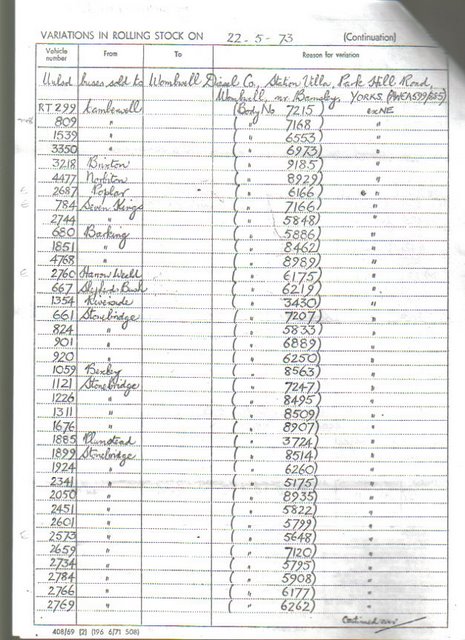 VARIATIONS IN ROLLING STOCK ON 22-5-73 (Continuation)
Vehicle number From To Reason for variation
buses sold to Wombwell Diesel Co., Station Villa, Park Hill Road,
Wombwell, nr Barnsley, YORKS
RT 299 Camberwell (Body No 7215) exNE
809 " ( " 7168) "
1539 " ( " 6553) "
3350 " ( " 6973) "
3218 Brixton ( " 9185) "
4477 Norbiton ( " 8929) "
2687 Poplar ( " 6166) "
784 Seven Kings ( " 7166) "
2744 " ( " 5848) "
680 Barking ( " 5886) "
1851 " ( " 8462) "
4768 " ( " 8989) "
2760 Harrow Weald ( " 6175) "
667 Shepherds Bush ( " 6219) "
1354 Riverside ( " 3430) "
661 Stonebridge ( " 7207) "
824 " ( " 5833) "
901 " ( " 6889) "
920 " ( " 6250) "
1059 Bexley ( " 8563) "
1121 Stonebridge ( " 7247) "
1226 " ( " 8495) "
1311 " ( " 8509) "
1676 " ( " 8907) "
1885 Plumstead ( " 3724) "
1899 Stonebridge ( " 8514) "
1924 " ( " 6260) "
2341 " ( " 5175) "
2050 " ( " 8935) "
2451 " ( " 5822) "
2601 " ( " 5799) "
2573 " ( " 5648) "
2659 " ( " 7120) "
2734 " ( " 5795) "
2784 " ( " 5908) "
2766 " ( " 6177) "
2769 " ( " 6262) "
Continued over
408/69 (2) (196 6/71 508)